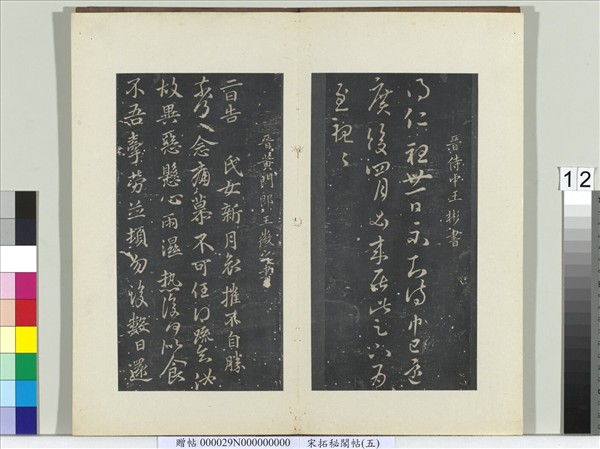 晉侍中王彬書
得仁祖卅日示知侍中已還
後四月必來此之小為
至視之
晉黃門郎王徽之書
二日告 氏女新月哀摧不自勝
奈何奈何念痛慕不可任得疏知汝
故異惡懸心雨濕熱復何似食
不吾牽勞並頓勿復數日還
12
贈帖 000029N000000000 宋拓秘閣帖(五)